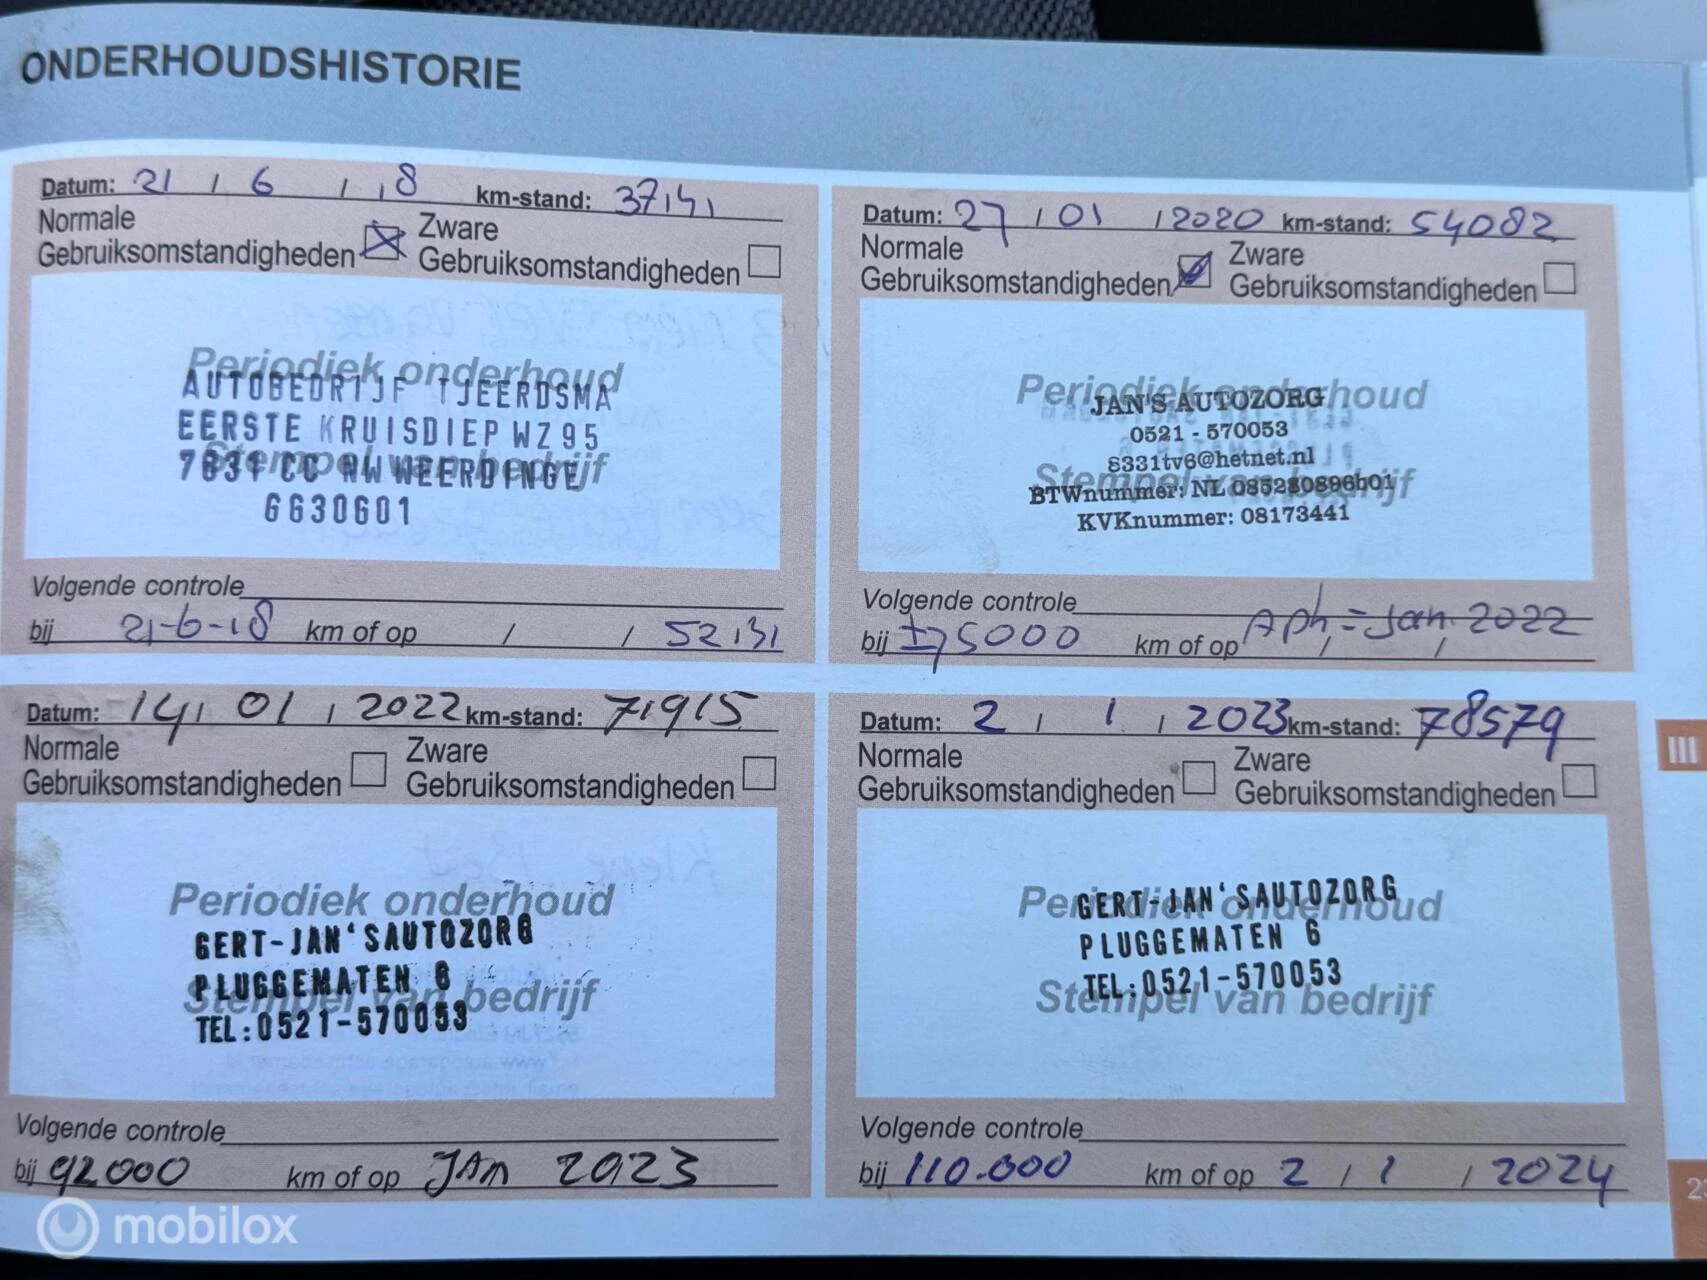 ONDERHOUDSHISTORIE
Datum: 21 / 6 / 18 km-stand: 37141
Normale Gebruiksomstandigheden Zware Gebruiksomstandigheden
Periodiek onderhoud
AUTOBEDRIJF TJEERDSMA
EERSTE KRUISDIEP WZ 95
Stempel van bedrijf
7831 CC NW WEERDINGE
6630601
Volgende controle
bij 21-6-18 km of op / / 52131
Datum: 27 / 01 / 2020 km-stand: 54082
Normale Gebruiksomstandigheden Zware Gebruiksomstandigheden
Periodiek onderhoud
JAN'S AUTOZORG
0521 - 570053
8331tv6@hetnet.nl
Stempel van bedrijf
BTWnummer: NL
KVKnummer: 08173441
Volgende controle
bij ±75000 km of op Apk = Jan. 2022
Datum: 14 / 01 / 2022 km-stand: 71915
Normale Gebruiksomstandigheden Zware Gebruiksomstandigheden
Periodiek onderhoud
GERT-JAN'SAUTOZORG
PLUGGEMATEN 6
Stempel van bedrijf
TEL:0521-570053
Volgende controle
bij 92000 km of op JAN 2023
Datum: 2 / 1 / 2023 km-stand: 78579
Normale Gebruiksomstandigheden Zware Gebruiksomstandigheden
Periodiek onderhoud
GERT-JAN'SAUTOZORG
PLUGGEMATEN 6
TEL:0521-570053
Stempel van bedrijf
Volgende controle
bij 110.000 km of op 2 / 1 / 2024
III
mobilox